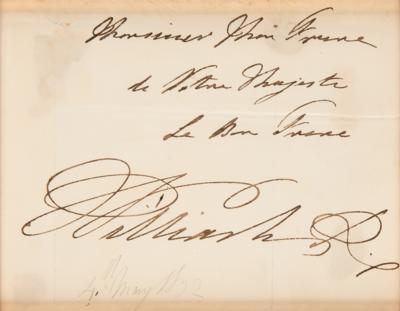 Monsieur Mon Frere
de Votre Majeste
Le Bon Frere
William R.
4th May 1832